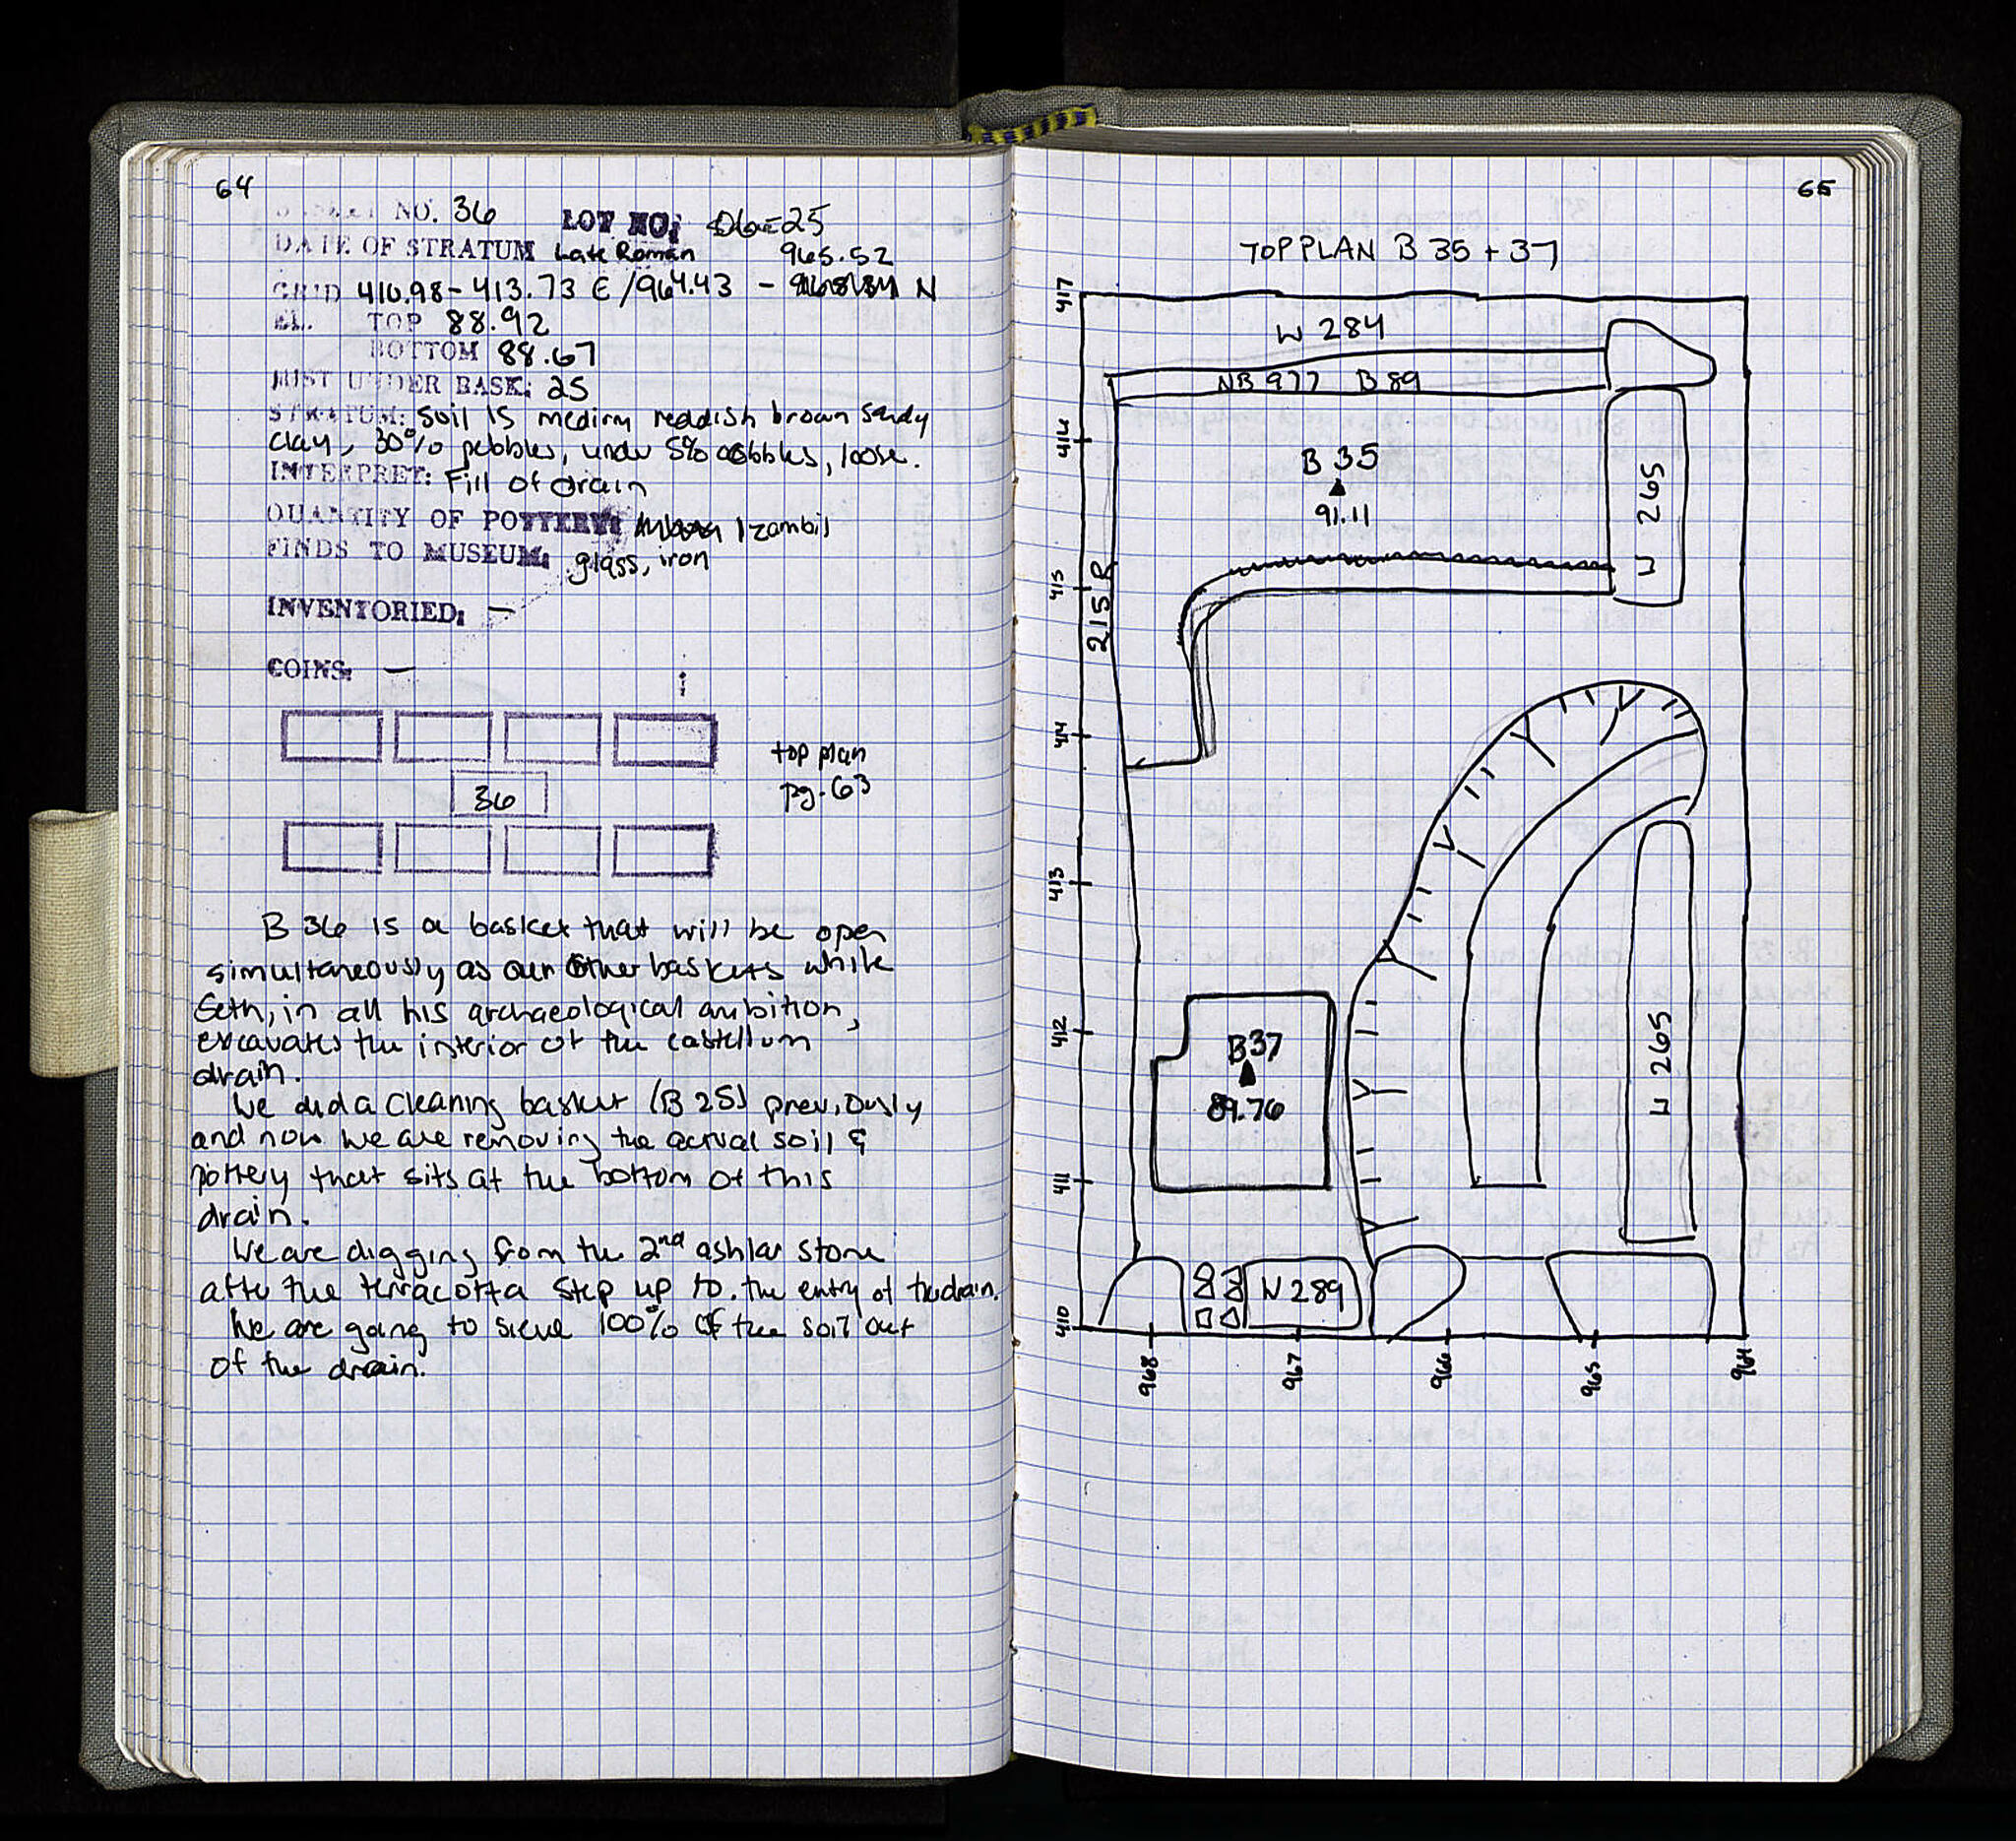 64
BASKET NO. 36 LOT NO: 06-25
DATE OF STRATUM Late Roman 965.52
GRID 410.98-413.73 E/964.43 - N
EL. TOP 88.92
BOTTOM 88.67
JUST UNDER BASK: 25
STRATUM: Soil is medium reddish brown sandy
clay, 30% pebbles, under 5% cobbles, loose.
INTERPRET: Fill of drain
QUANTITY OF POTTERY: 1 zambil
FINDS TO MUSEUM: glass, iron
INVENTORIED: —
COINS: —
36
top plan
pg. 63
B 36 is a basket that will be open
simultaneously as our other baskets while
Seth, in all his archaeological ambition,
excavates the interior of the castellum
drain.
We did a cleaning basket (B 25) previously
and now we are removing the actual soil &
pottery that sits at the bottom of this
drain.
We are digging from the 2nd ashlar stone
after the terracotta step up to the entry of the drain.
We are going to sieve 100% of the soil out
of the drain.
65
TOP PLAN B 35 + 37
417
W 284
NB 977 B 89
416
B 35
91.11
W 265
415
215 R
414
413
412
B37
89.76
W 265
411
W 289
410
968
967
966
965
964